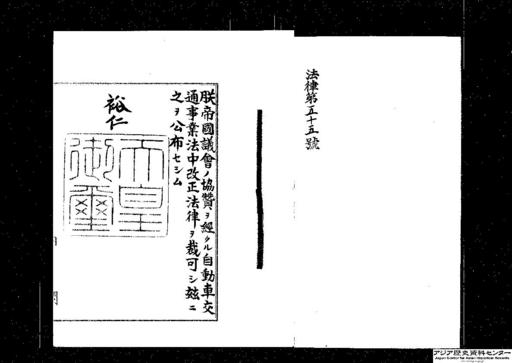 法律第五十五號
朕帝國議會ノ協贊ヲ經タル自動車交
通事業法中改正法律ヲ裁可シ玆ニ
之ヲ公布セシム
裕仁
天皇
御璽
アジア歴史資料センター
Japan Center for Asian Historical Records